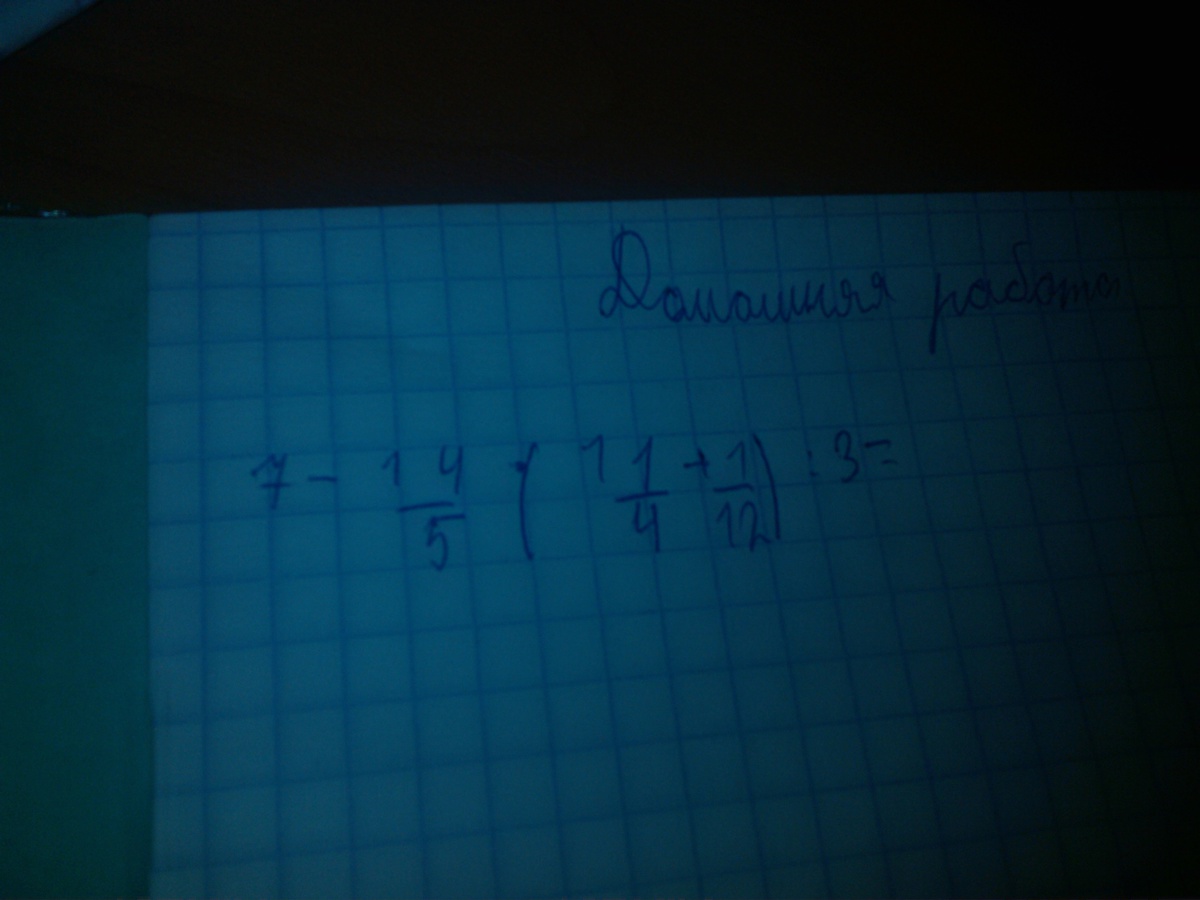 Домашняя работа
7 - 1 4/5 · (1 1/4 + 1/12) : 3 =